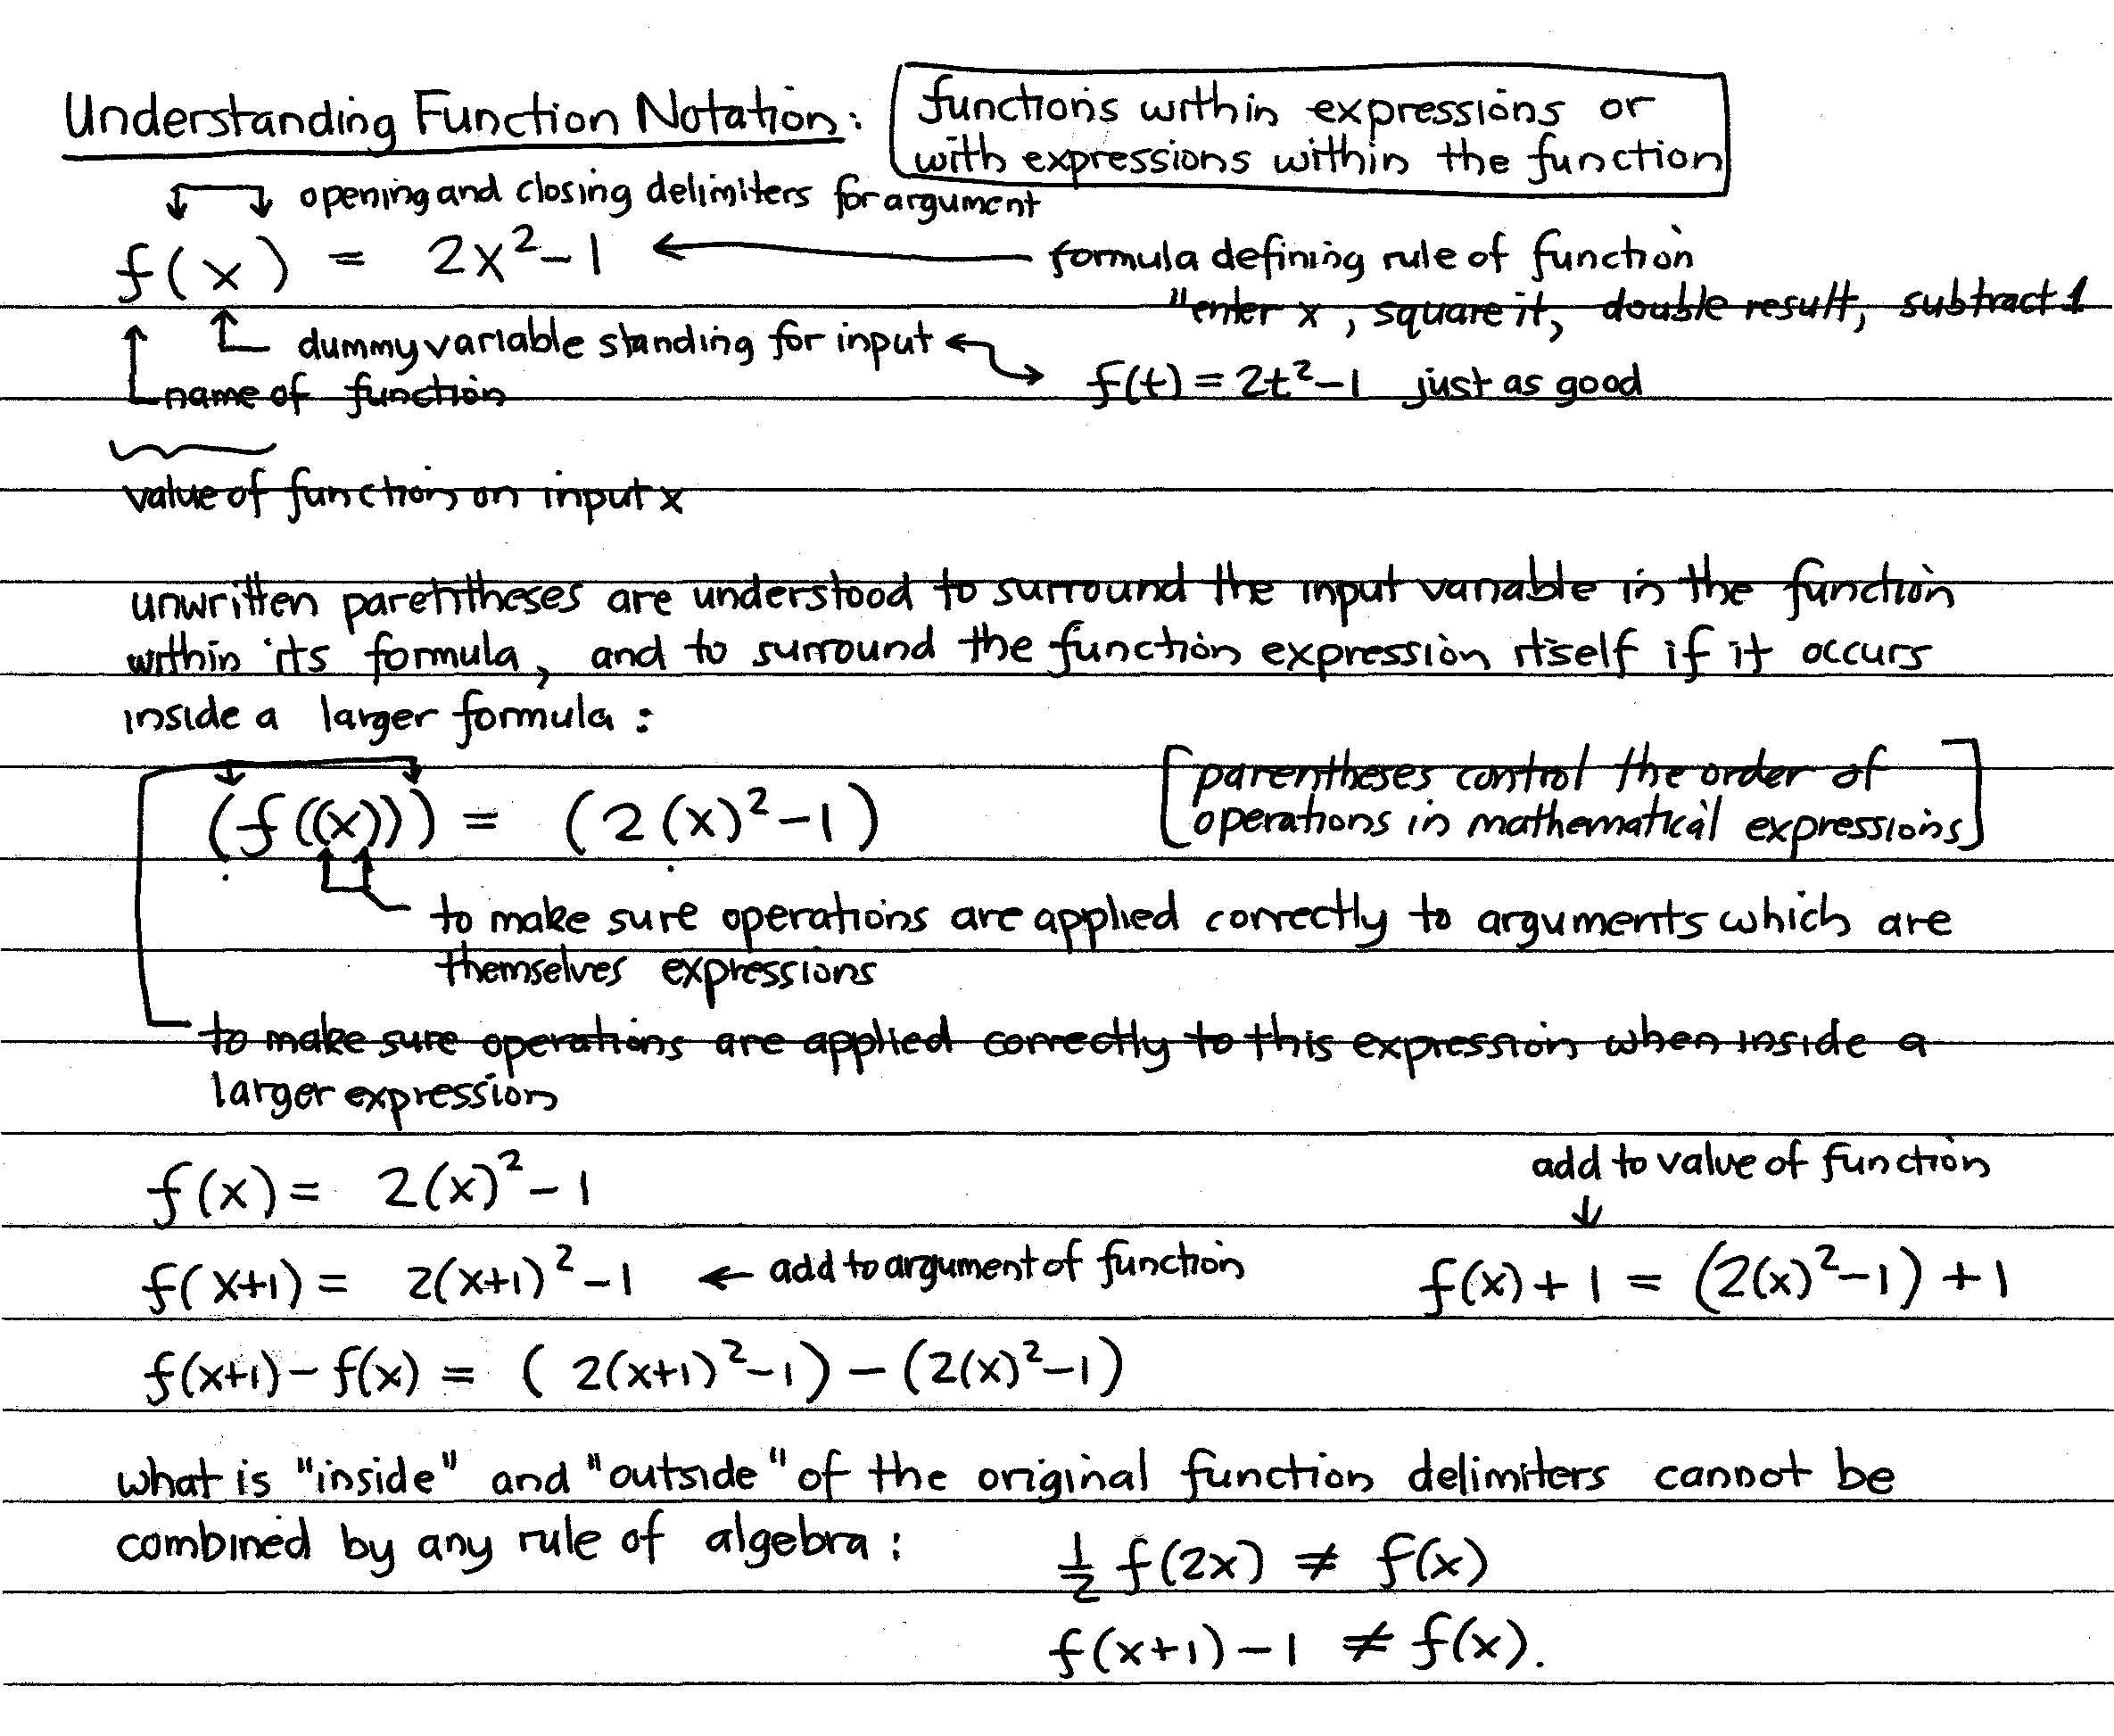 Understanding Function Notation:
functions within expressions or
with expressions within the function
opening and closing delimiters for argument
f(x) = 2x²-1 ← formula defining rule of function
"enter x, square it, double result, subtract 1
dummy variable standing for input
f(t) = 2t²-1 just as good
name of function
value of function on input x
unwritten parentheses are understood to surround the input variable in the function
within its formula, and to surround the function expression itself if it occurs
inside a larger formula:
(f((x))) = (2(x)²-1)
[parentheses control the order of
operations in mathematical expressions]
to make sure operations are applied correctly to arguments which are
themselves expressions
to make sure operations are applied correctly to this expression when inside a
larger expression
f(x) = 2(x)²-1
add to value of function
↓
f(x+1) = 2(x+1)²-1 ← add to argument of function
f(x)+1 = (2(x)²-1)+1
f(x+1)-f(x) = (2(x+1)²-1)-(2(x)²-1)
what is "inside" and "outside" of the original function delimiters cannot be
combined by any rule of algebra:
½ f(2x) ≠ f(x)
f(x+1)-1 ≠ f(x).